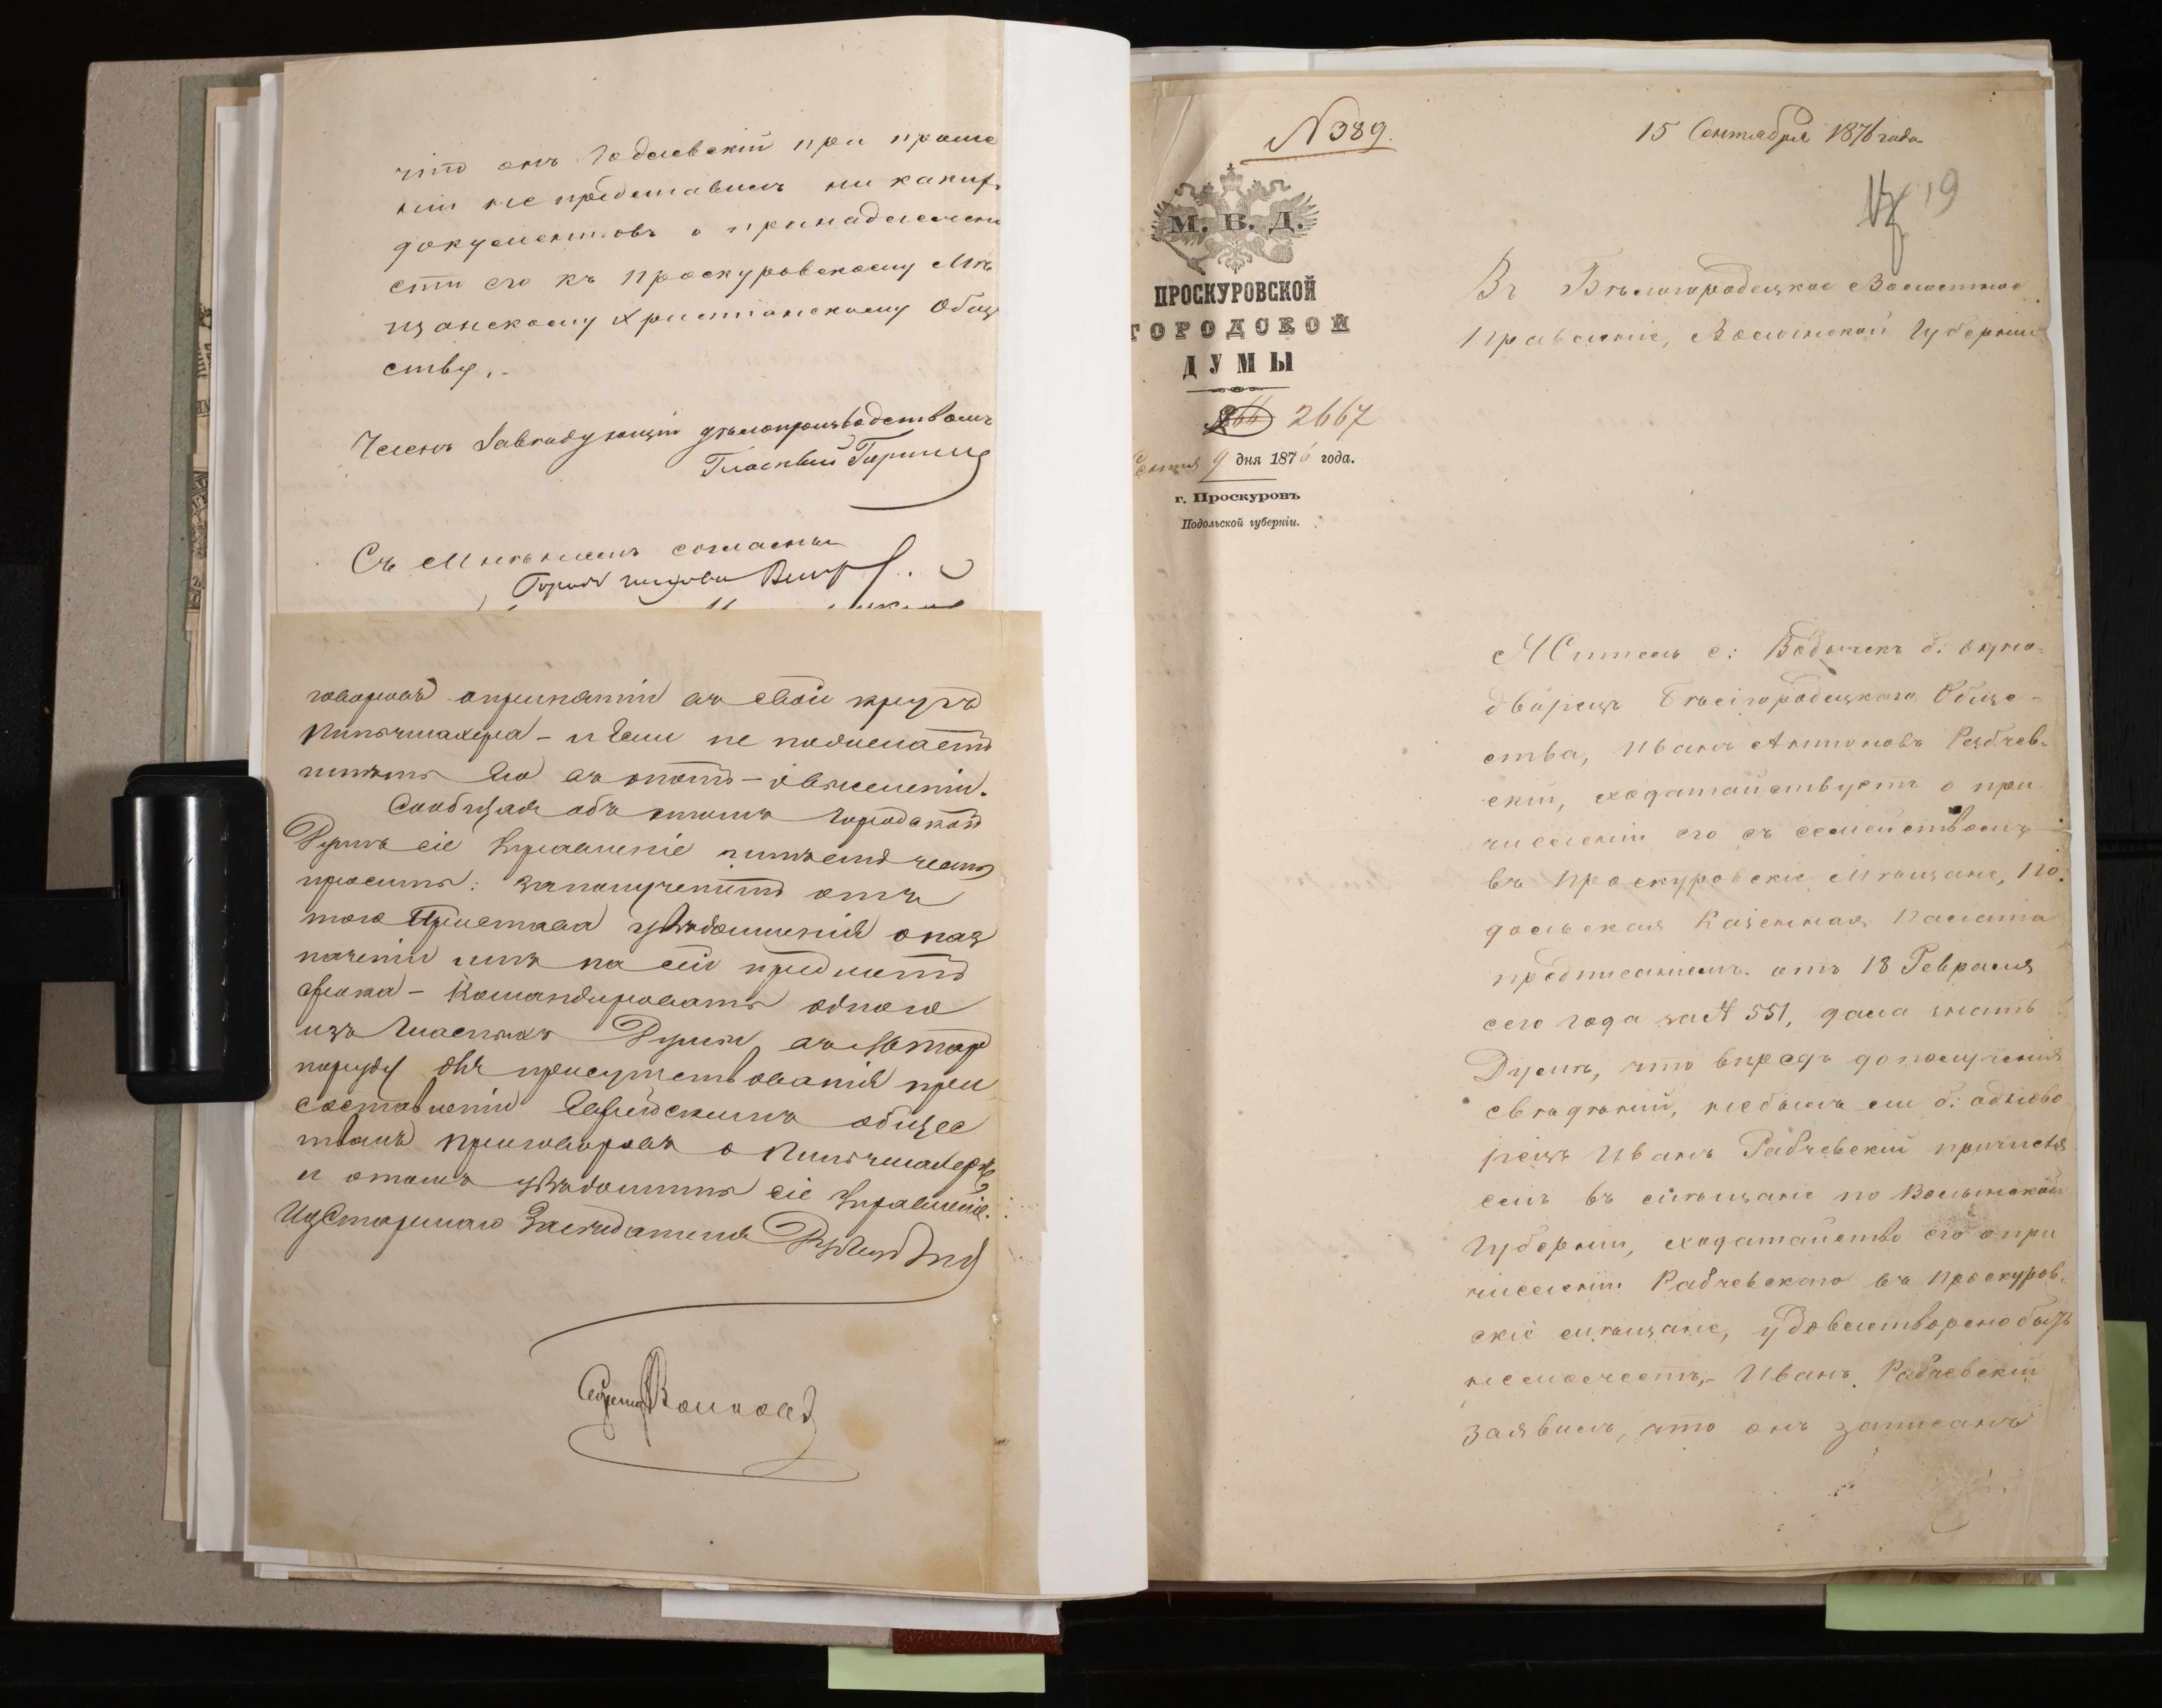 что онъ Годлевскій при проше
ніи не представилъ ни какихъ
документовъ о принадлежно
сти его къ Проскуровскому Мѣ
щанскому Христіанскому Обще
ству.-
Членъ Завѣдующій дѣлопроизводствомъ
Гласный
Съ мнѣніемъ согласны
Город. голова
говоровъ опринятіи въ свой кругъ
Кипнчмахера - и
его въ
Сообщая объ этомъ городской
Думѣ сіе Управленіе имѣетъ честь
просить: заполученіемъ отъ
того Пристава увѣдомленія о наз
наченіи имъ на сей предметъ
срока - Командировать одного
изъ Гласныхъ Думы въ
для присутствованія при
составленіи Еврейскимъ общес
твомъ приговоровъ о
и отомъ увѣдомить сіе Управленіе.
Засѣдателя
Волковъ
№ 389.
15 Сентября 1876 года
19
М. В. Д.
ПРОСКУРОВСКОЙ
ГОРОДСКОЙ
ДУМЫ
2667
Сентяб 9 дня 1876 года.
г. Проскуровъ
Подольской губерніи.
Въ Бѣлогородецкое Волостное
Правленіе, Волынской Губерніи
Житель с: Водычекъ б: одно-
дворецъ Бѣлогородецкаго Обще-
ства, Иванъ Антоновъ Рабчев-
скій, ходатайствуетъ о при
численіи его съ семействомъ
въ Проскуровскіе Мѣщане, По-
дольская Казенная Палата
предписаніемъ отъ 18 Февраля
сего года за № 551, дала знать
Думѣ, что впредь до полученія
свѣдѣній, небылъ ли б: однодво
рецъ Иванъ Рабчевскій причис
ленъ въ мѣщане по Волынской
Губерніи, ходатайство его о при
численіи Рабчевскаго въ Проскуров-
скіе мѣщане, удовлетворено быть
неможетъ,- Иванъ Рабчевскій
заявилъ, что онъ записанъ